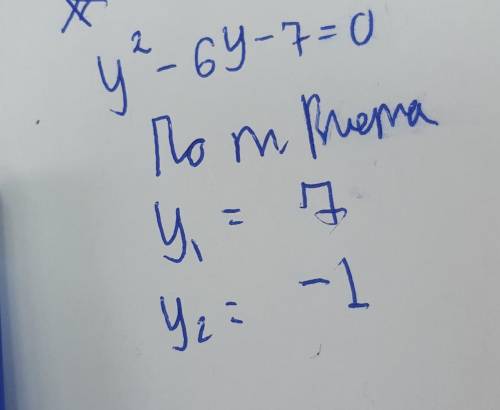 y² - 6y - 7 = 0
По т Виета
y₁ = 7
y₂ = -1